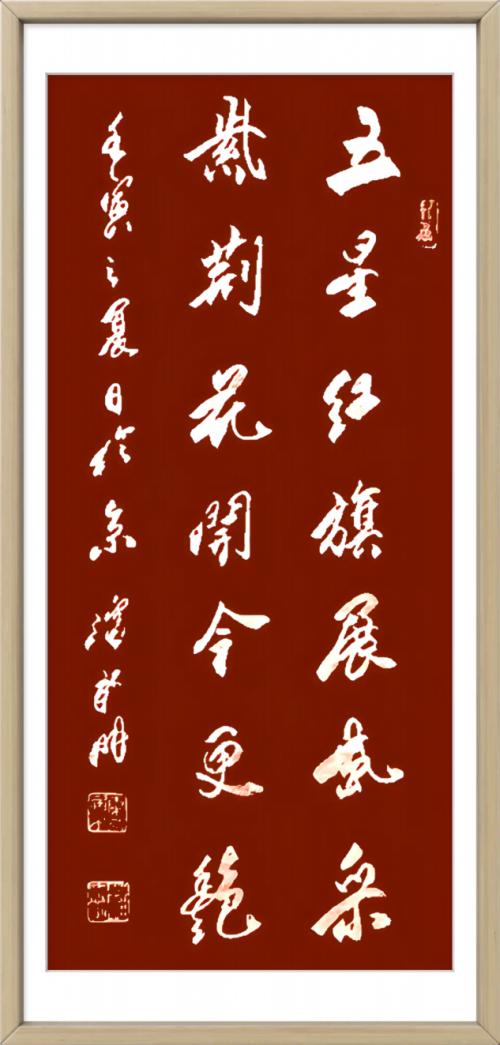 五星红旗展采
紫荆花開今更艷
壬寅之夏日於京